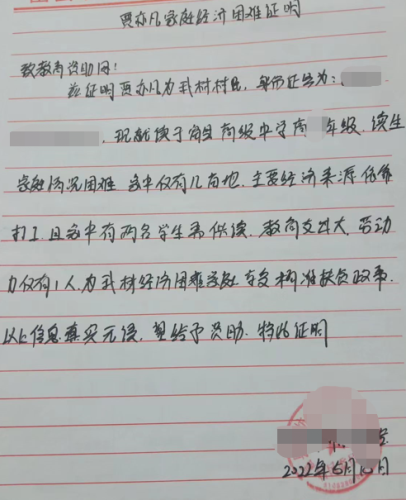 贾亦凡家庭经济困难证明
致教育资助网:
兹证明贾亦凡为我村村民,身份证号为:
现就读于 高级中学高 年级,该生
家庭情况困难,家中仅有几亩地,主要经济来源依靠
打工,且家中有两名学生需供读,教育支出大,劳动
力仅有1人,为我村经济困难家庭,享受精准扶贫政策.
以上信息真实无误,望给予资助.特此证明
2022年5月10日